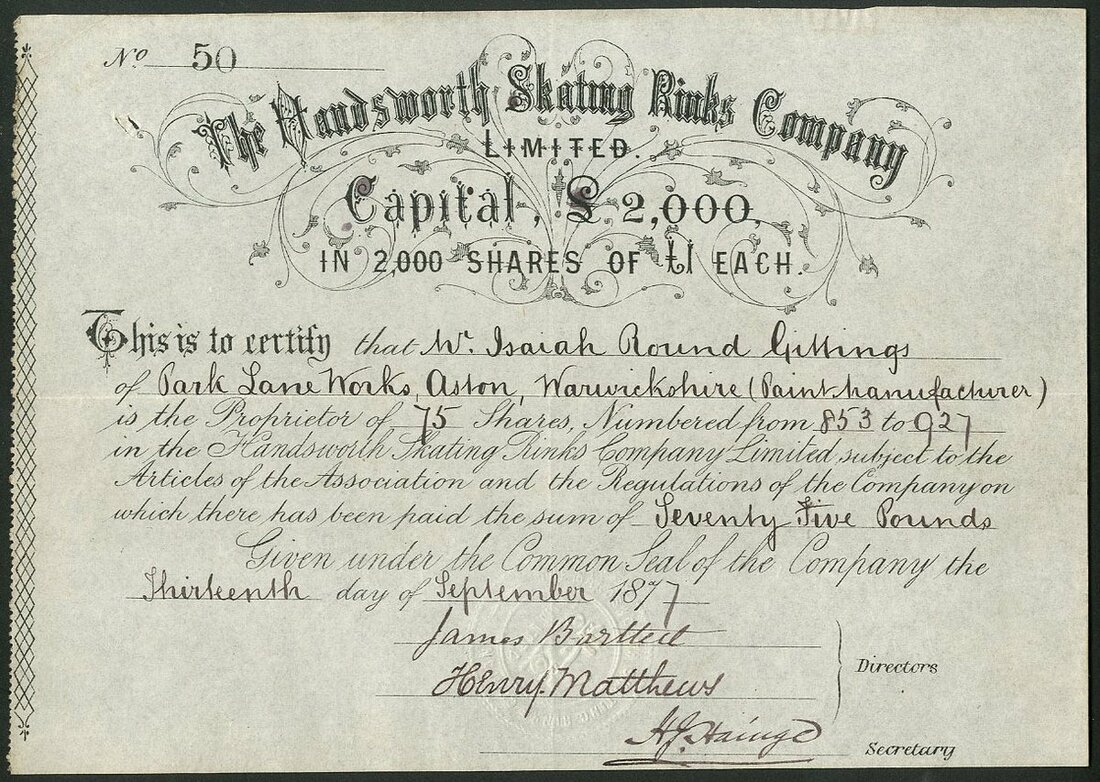 No 50
The Handsworth Skating Rinks Company
LIMITED.
Capital, £2,000,
IN 2,000 SHARES OF £1 EACH.
This is to certify that Mr. Isaiah Round Gittings
of Park Lane Works, Aston, Warwickshire (Paint manufacturer)
is the Proprietor of 75 Shares, Numbered from 853 to 927
in the Handsworth Skating Rinks Company Limited, subject to the
Articles of the Association and the Regulations of the Company on
which there has been paid the sum of Seventy Five Pounds
Given under the Common Seal of the Company the
Thirteenth day of September 1877
James Bartlett
Henry Matthews
Directors
Secretary